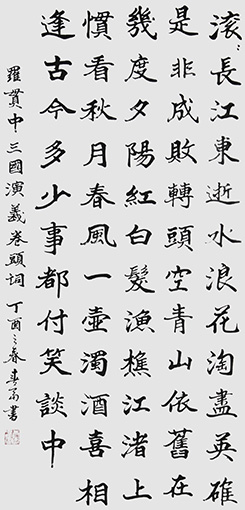 滚〻長江東逝水浪花淘盡英雄
是非成敗轉頭空青山依舊在
幾度夕陽紅白髮漁樵江渚上
慣看秋月春風一壺濁酒喜相
逢古今多少事都付笑談中
羅貫中三國演義卷頭詞 丁酉之春 書